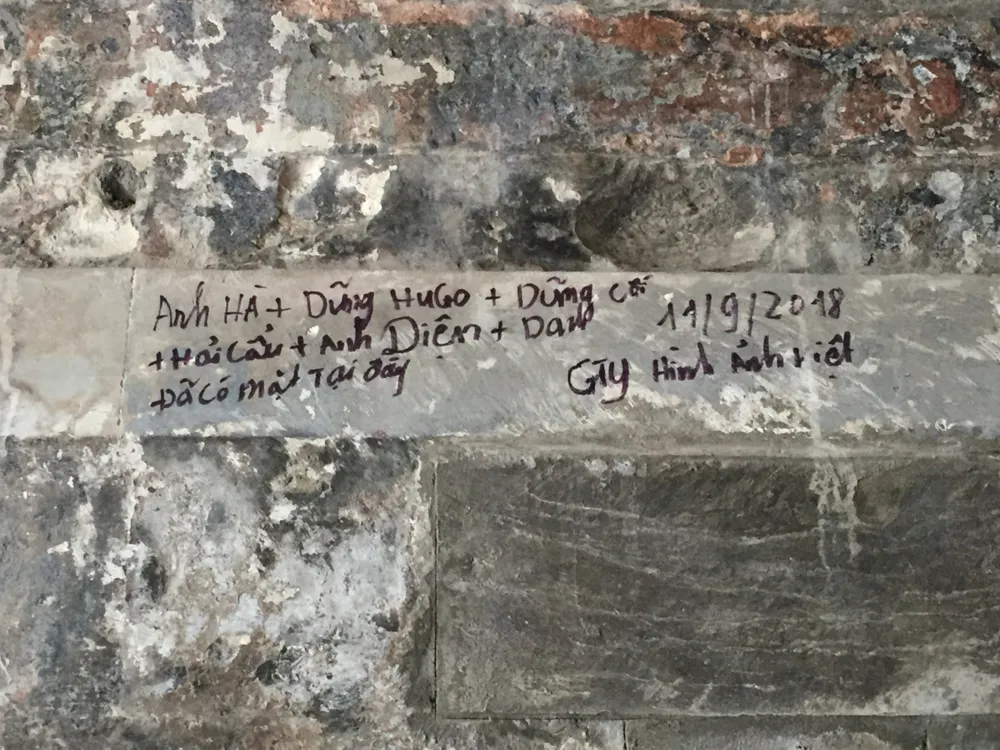 Anh HÀ + Dũng HuGO + Dũng Cối 11/9/2018
+ Hải Cẩu + Anh Diện + Danh
Đã có mặt Tại đây
GTY Hình Ảnh Việt